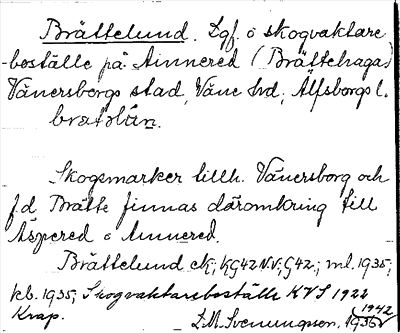 Brättelund. Lgf. o skogvaktare
-boställe på Ainnered (Brättehagar)
Vänersborgs stad, Väne hd, Älfsborgs l.
bratəlún.
Skogsmarker tillh. Vänersborg och
f.d. Brätte finnas däromkring till
Aspered o Annered.
Brättelund ek; KG42NV; G42; ml. 1935;
kb. 1935; Skogvaktareboställe KVS 1922
Krap.
L.M. Svenungson, 1935
1942